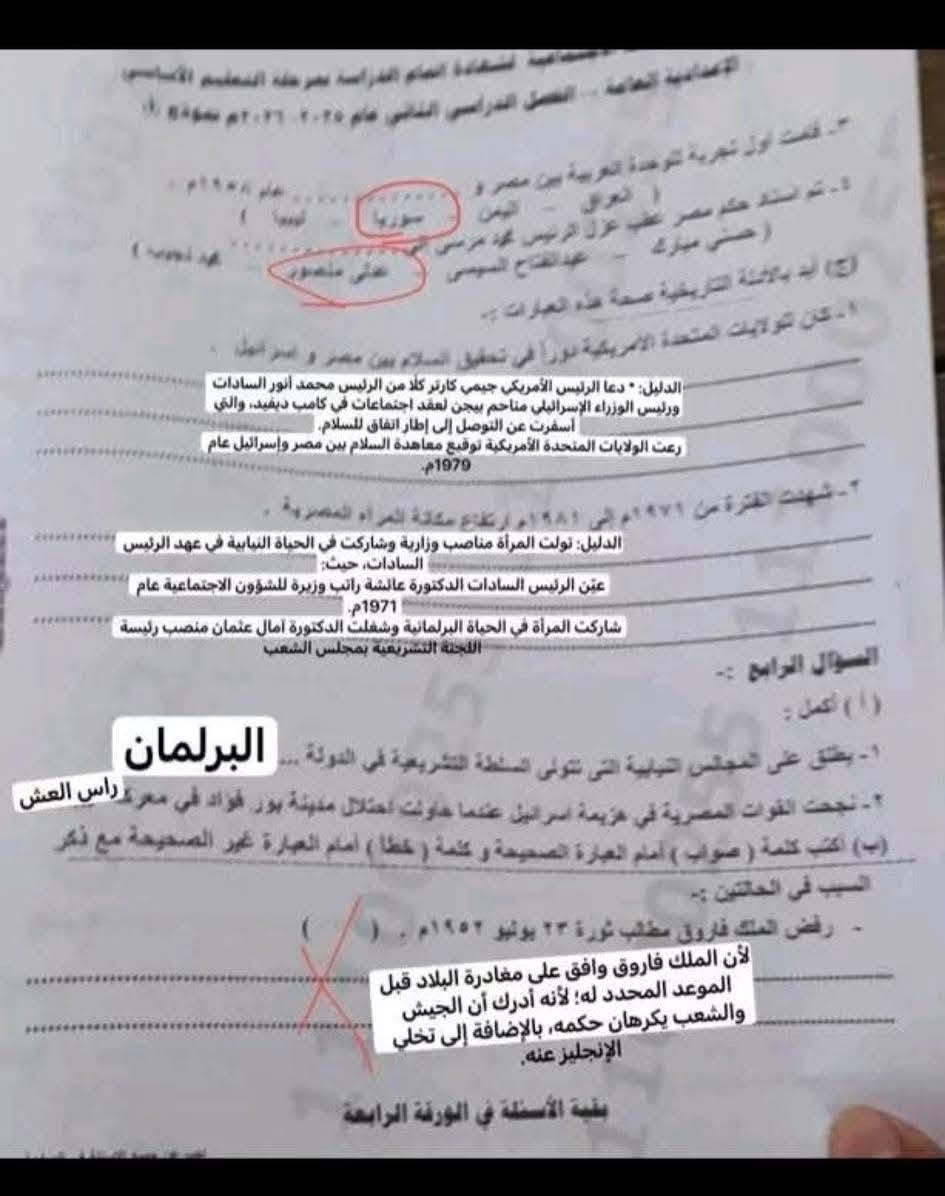 الاجتماعية لشهادة اتمام الدراسة بمرحلة التعليم الأساسي
الإعدادية العامة - الفصل الدراسي الثاني عام ٢٠٢٥ - ٢٠٢٦م نموذج (أ)
٣- قامت أول تجربة للوحدة العربية بين مصر و .................. عام ١٩٥٨م .
( العراق - اليمن - سوريا - ليبيا )
٤- تم اسناد حكم مصر عقب عزل الرئيس محمد مرسى الى ..................
( حسنى مبارك - عبدالفتاح السيسى - عدلى منصور - محمد نجيب )
(ج) أيد بالأدلة التاريخية صحة هذه العبارات :-
١- كان للولايات المتحدة الأمريكية دوراً في تحقيق السلام بين مصر و اسرائيل .
الدليل: * دعا الرئيس الأمريكي جيمي كارتر كلًا من الرئيس محمد أنور السادات
ورئيس الوزراء الإسرائيلي مناحم بيجن لعقد اجتماعات في كامب ديفيد، والتي
أسفرت عن التوصل إلى إطار اتفاق للسلام.
رعت الولايات المتحدة الأمريكية توقيع معاهدة السلام بين مصر وإسرائيل عام
1979م.
٢- شهدت الفترة من ١٩٧١م إلى ١٩٨١م ارتفاع مكانة المراه المصرية .
الدليل: تولت المرأة مناصب وزارية وشاركت في الحياة النيابية في عهد الرئيس
السادات، حيث:
عيّن الرئيس السادات الدكتورة عائشة راتب وزيرة للشؤون الاجتماعية عام
1971م.
شاركت المرأة في الحياة البرلمانية وشغلت الدكتورة آمال عثمان منصب رئيسة
اللجنة التشريعية بمجلس الشعب
السؤال الرابع :-
( أ ) أكمل :
١- يطلق على المجالس النيابية التى تتولى السلطة التشريعية في الدولة ... البرلمان
٢- نجحت القوات المصرية في هزيمة اسرائيل عندما حاولت احتلال مدينة بور فؤاد في معركة راس العش
(ب) أكتب كلمة ( صواب ) أمام العبارة الصحيحة و كلمة ( خطأ ) أمام العبارة غير الصحيحة مع ذكر
السبب في الحالتين :-
- رفض الملك فاروق مطالب ثورة ٢٣ يوليو ١٩٥٢م . ( )
لأن الملك فاروق وافق على مغادرة البلاد قبل
الموعد المحدد له؛ لأنه أدرك أن الجيش
والشعب يكرهان حكمه، بالإضافة إلى تخلي
الإنجليز عنه.
بقية الأسئلة في الورقة الرابعة